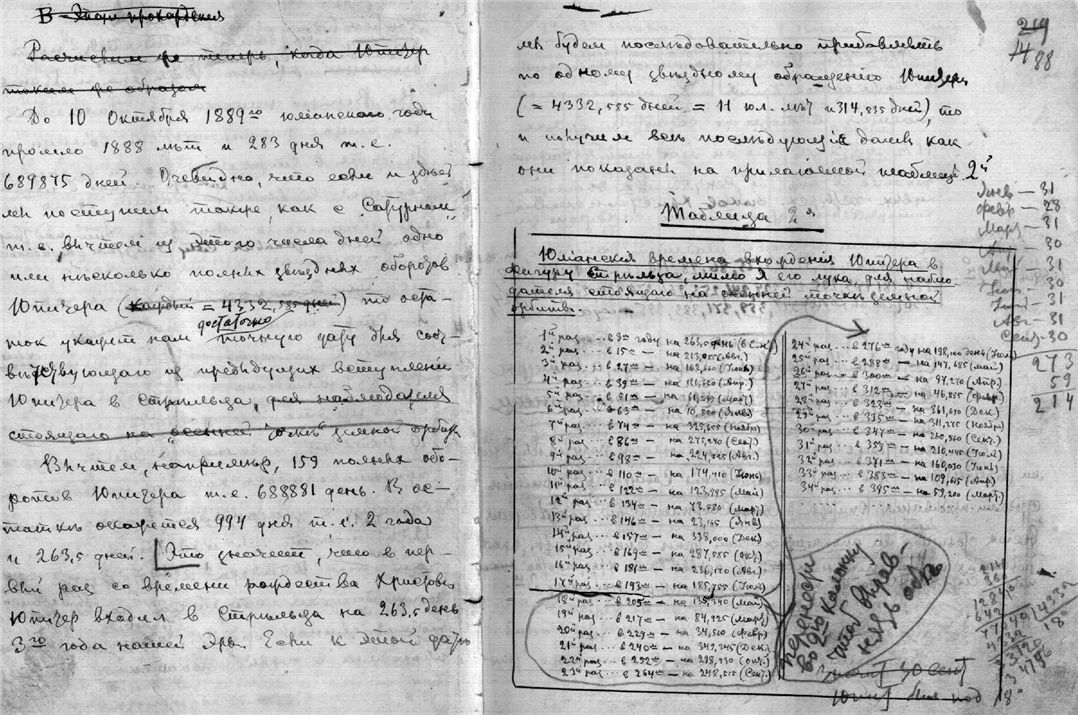 В Этом
Разчислим же теперь, когда Юпитер
таким же образом
До 10 Октября 1889го юлианского года
прошло 1888 лет и 283 дня т.е.
689875 дней. Очевидно, что если и здесь
мы поступим также, как с Сатурном
т.е. вычтем из этого числа дней одно
или несколько полных звездных оборотов
Юпитера (= 4332,585 дней) то оста-
достаточно
ток укажет нам точную дату для соот-
ветствующаго из предыдущих вступлений
Юпитера в Стрельца, для наблюдателя
стоящаго на осенней точке земной орбиты
Вычтем, например, 159 полных обо-
ротов Юпитера т.е. 688881 день. В ос-
татке окажется 994 дня т.е. 2 года
и 263,5 дней. Это значит, что в пер-
вый раз со времени рождества Христова
Юпитер входил в Стрельца на 263,5 день
3го года нашей Эры. Если к этой дате
219
488
мы будем последовательно прибавлять
по одному звездному обращению Юпитера
(= 4332,585 дней = 11 юл. лет и 314,835 дней), то
и получим весь последующие даты как
они показаны на прилагаемой таблице 2й
Таблица 2я
Юлианския времена вхождения Юпитера в
фигуру Стрельца, мимо его лука, для наблю-
дателя стоящаго на осенней точке земной
орбиты.
1й раз ... в 3м году на 263,5 день (в Сент.)
2й раз ... в 15м — на 213,05 (Авг.)
3й раз ... в 27м — на (Июнь)
4й раз ... в 39м — на (Апр.)
5й раз ... в 51м — на (Март)
6й раз ... в 63м — на (Янв)
7й раз ... в 74м — на 325,605 (Ноябрь)
8й раз ... в 86м — на 275,240 (Сент.)
9й раз ... в 98м — на 224,825 (Авг.)
10й раз ... в 110м — на 174,410 (Июнь)
11й раз ... в 122м — на 123,995 (Май)
12й раз ... в 134м — на 73,580 (Март)
13й раз ... в 146м — на 23,165 (Янв)
14й раз ... в 157м — на 338,000 (Дек)
15й раз ... в 169м — на 287,585 (Окт.)
16й раз ... в 181м — на 236,170 (Авг.)
17й раз ... в 193м — на 185,755 (Июль)
18й раз ... в 205м — на 135,340 (Май)
19й раз ... в 217м — на 84,925 (Март)
20й раз ... в 229м — на 34,510 (Февр)
21й раз ... в 240м — на 349,345 (Дек.)
22й раз ... в 252м — на 298,930 (Окт.)
23й раз ... в 264м — на 248,515 (Сент.)
24й раз ... в 276м году на 198,100 день (Июль)
25й раз ... в 288м — на 147,685 (Май)
26й раз ... в 300м — на 97,270 (Апр.)
27й раз ... в 312м — на 46,855 (Февр)
28й раз ... в 323м — на 361,690 (Дек.)
29й раз ... в 335м — на 311,275 (Ноябрь)
30й раз ... в 347м — на 260,860 (Сент.)
31й раз ... в 359м — на 210,445 (Июль)
32й раз ... в 371м — на 160,030 (Июнь)
33й раз ... в 383м — на 109,615 (Апр)
34й раз ... в 395м — на 59,200 (Март)
перенести
во 2ую колонну
чтоб вырав-
нялись обе
Янв — 31
Февр — 28
Март — 31
30
Май — 31
Июнь — 30
Июль — 31
Авг — 31
Сент — 30
273
59
214
30 Сент